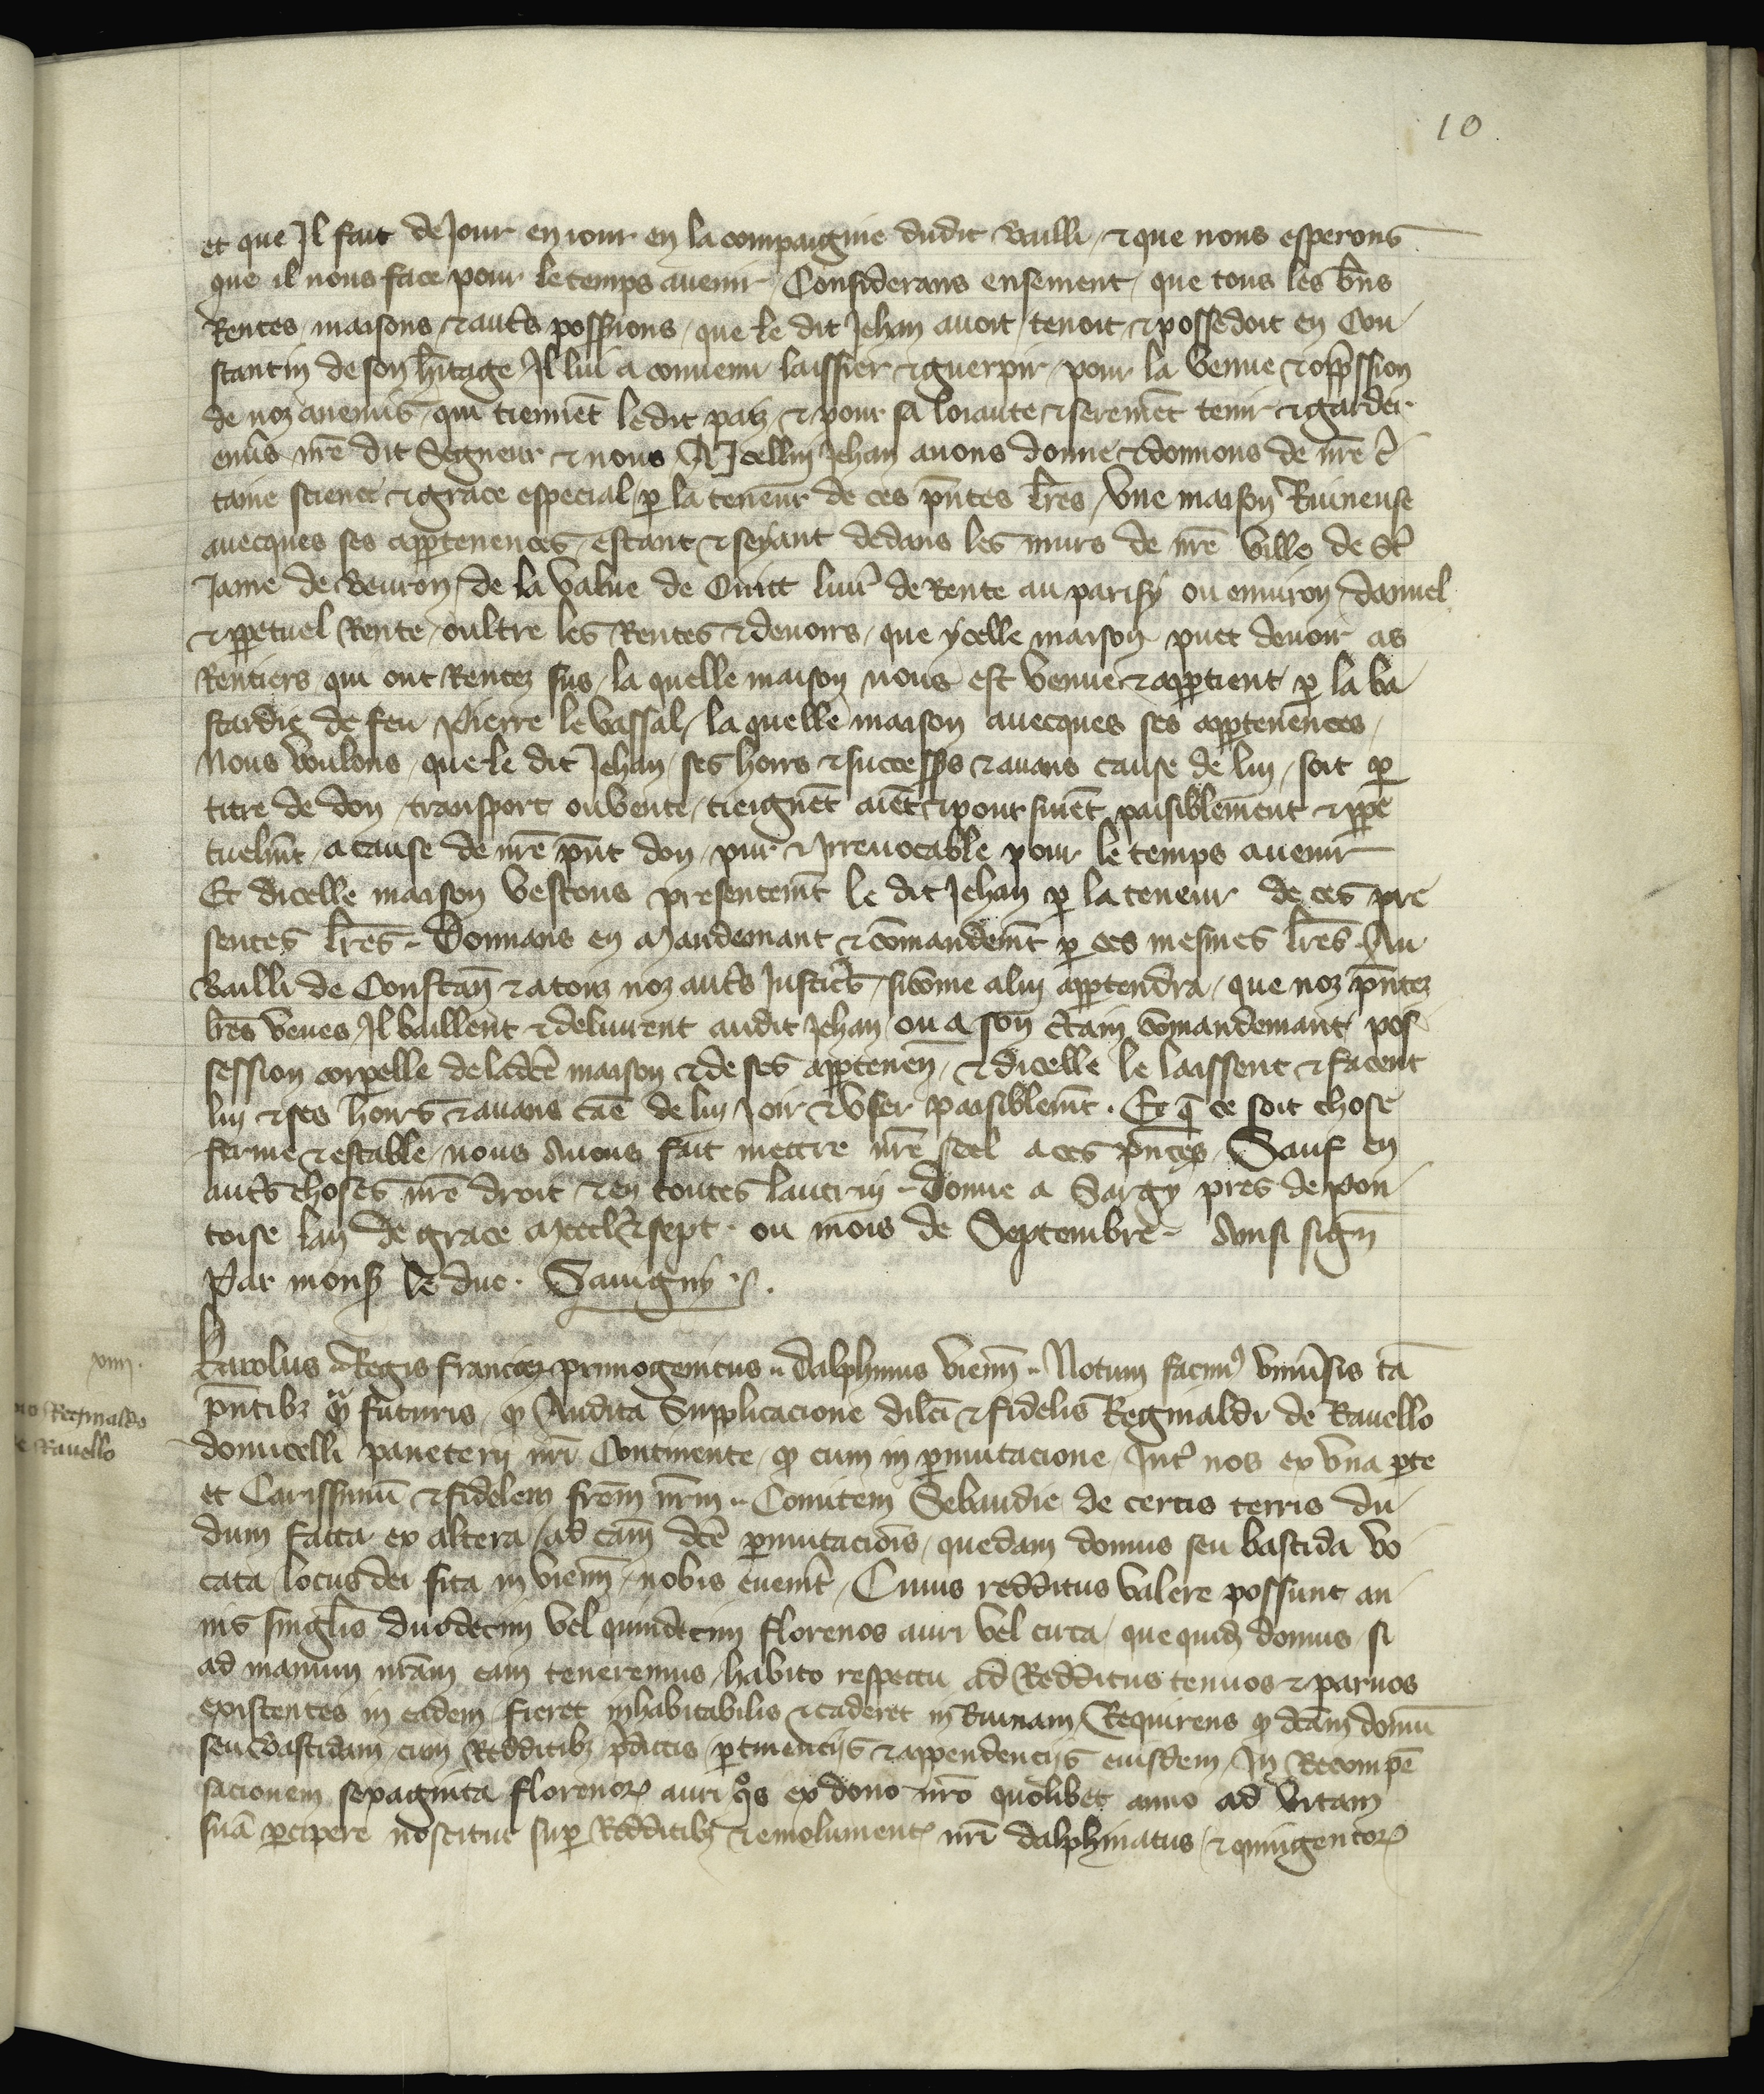 10
et que Il fait de Jour en iour en la compaignie dudit Bailli / & que nous esperons
que il nous face pour le temps auenir / Considerans ensement / que tous les bn̄s
Rentes / maisons & aut̉s possions / que le dit Jehan auoit / tenoit & possedoit en Con
stantin de son h̄itage / Il lui a conuenu laissier & guerpir / pour la venue & opp̄ssion
de noz anemis / qui tiennēt ledit paiz / & pour sa loiaute & seremēt tenir & garder
enủs nr̄e dit Segneur & nous / A Icelluy Jehan auons donne & donnons de nr̄e c̉
taine science & grace especial / p̱ la teneur de ces p̄ntes lr̄es / vne maison Ruineuse
auecques ses app̱tenences / estant & seyant dedans les murs de nr̄e ville de St̉
Jame de Beuron / de la value de Cinq̄ liur̉ de Rente au parisy ou enuiron / danuel
& pp̱etuel Rente / oultre les Rentes & deuoirs / que ycelle maison puet deuoir as
Rentiers qui ont Rentez sus / la quelle maison nous est venue & app̱tient / p̱ la ba
stardie de feu Pierre le vassal / la quelle maison auecques ses app̱tenences /
Nous voulons / que le dit Jehan / ses hoirs & success̉s & aians cause de luy / soit p̱
titre de don / transport ou vente / tieignēt aiēt & pour suiēt paisiblement & pp̱e
tuelm̄t / a cause de nr̄e p̄nt don / pur & Irreuocable pour le temps auenir
Et dicelle maison vestons presentem̄t le dit Jehan p̱ la teneur de ces pre
sentes lr̄es / Donnans en Mandemant & cōmandem̄t p̱ ces mesmes lr̄es Au
Bailli de Constan̄ & a touz noz aut̉s Justic̉s / si cōme a luy app̱tendra / que noz p̄ntez
lr̄es veues Il baillent & deliurent audit Jehan / ou a son c̉tain cōmandemant / pos
session corp̱elle de lad̄ce maison & de ses app̱tenen̄ / & dicelle le laissent & facent
luy & ses hoirs & aians cāe de luy Joir & vser paisiblem̄t . Et q̄ ce soit chose
ferme & estable / nous Auons fait mettre nr̄e seel a ces p̄ntes / Sauf en
aut̉s choses nr̄e droit & en toutes lautruy / Donne a Sargy pres de Pon
toise lan de grace Mccclx̉ & sept . ou mois de Septembre / Ainsi sign̄
Par mons̉ le duc . Sauigny .
xiiii .
Karolus Regis francie primogenitus dalphinus vienn̄ Notum facimꝰ vniủsis tā
p̄ntibz q̄ᵃ futuris / ꝙ Audita Supplicacione dil̄ci & fidelis Reginaldi de Rauello
Reginaldo
Rauello
domicelli paneterij nr̄i Continente / ꝙ cum in p̱mutacione Int̉ nos ex vna p̱te
et Carissimū & fidelem fr̄em nr̄m Comitem Sebaudie de certis terris du
dum facta ex altera / ad cām d̄ce p̱mutacōis / quedam domus seu bastida vo
cata locus dei sita in vienn̄ / nobis euenit̉ / Cuius redditus valere possunt an
nis sinḡlis duodecim vel quindecim florenos auri vel circa / que quid̄ domus / si
ad manum nr̄am eam teneremus / habito respectu ad Redditus tenuos & paruos
existentes in eadem / fieret inhabitabilis & caderet in Ruinam / Requirens ꝙ d̄cam domū
seu Bastidam / cum Redditibz p̄dictis p̱tinencijs & appendencijs eiusdem / In Recompē
sacionem sexaginta florenoꝝ auri q̊s ex dono nr̄o quolibet anno ad vitam
suā p̱cipere noscitur sup̱ Redditibz & emolumentꝭ nr̄i dalphinatus / & quingentoꝝ